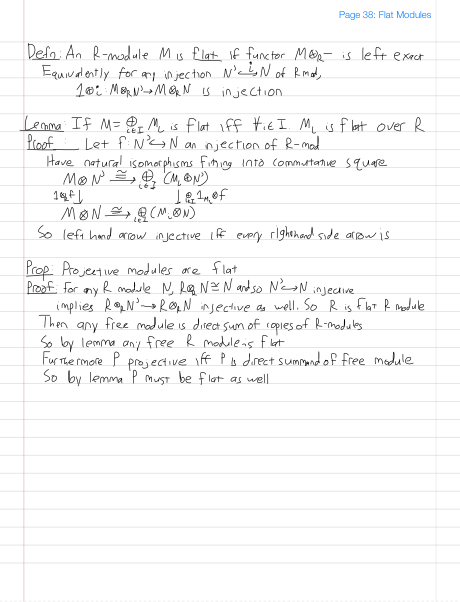 Page 38: Flat Modules
Defn: An R-module M is flat if functor M⊗_R− is left exact
Equivalently for any injection N' ↪^i N of R mod,
1⊗i: M⊗_R N' → M⊗_R N is injection
Lemma: If M = ⊕_{i∈I} M_i is flat iff ∀i∈I. M_i is flat over R
Proof: Let f: N' ↪ N an injection of R-mod
Have natural isomorphisms fitting into commutative square
M⊗N' ≅→ ⊕_{i∈I} (M_i⊗N')
1⊗f ↓ ↓ ⊕_{i∈I} 1_{M_i}⊗f
M⊗N ≅→ ⊕_{i∈I} (M_i⊗N)
So left hand arrow injective iff every righthand side arrow is
Prop: Projective modules are flat
Proof: For any R module N, R⊗_R N ≅ N and so N' ↪ N injective
implies R⊗_R N' → R⊗_R N injective as well. So R is flat R module
Then any free module is direct sum of copies of R-modules
So by lemma any free R module is flat
Furthermore P projective iff P is direct summand of free module
So by lemma P must be flat as well